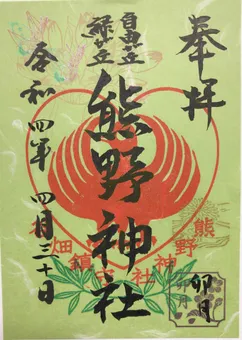 奉拝
自由が丘
緑が丘
熊野神社
令和四年四月三十日
熊野神社
鎮守
畑
卯月
卯月